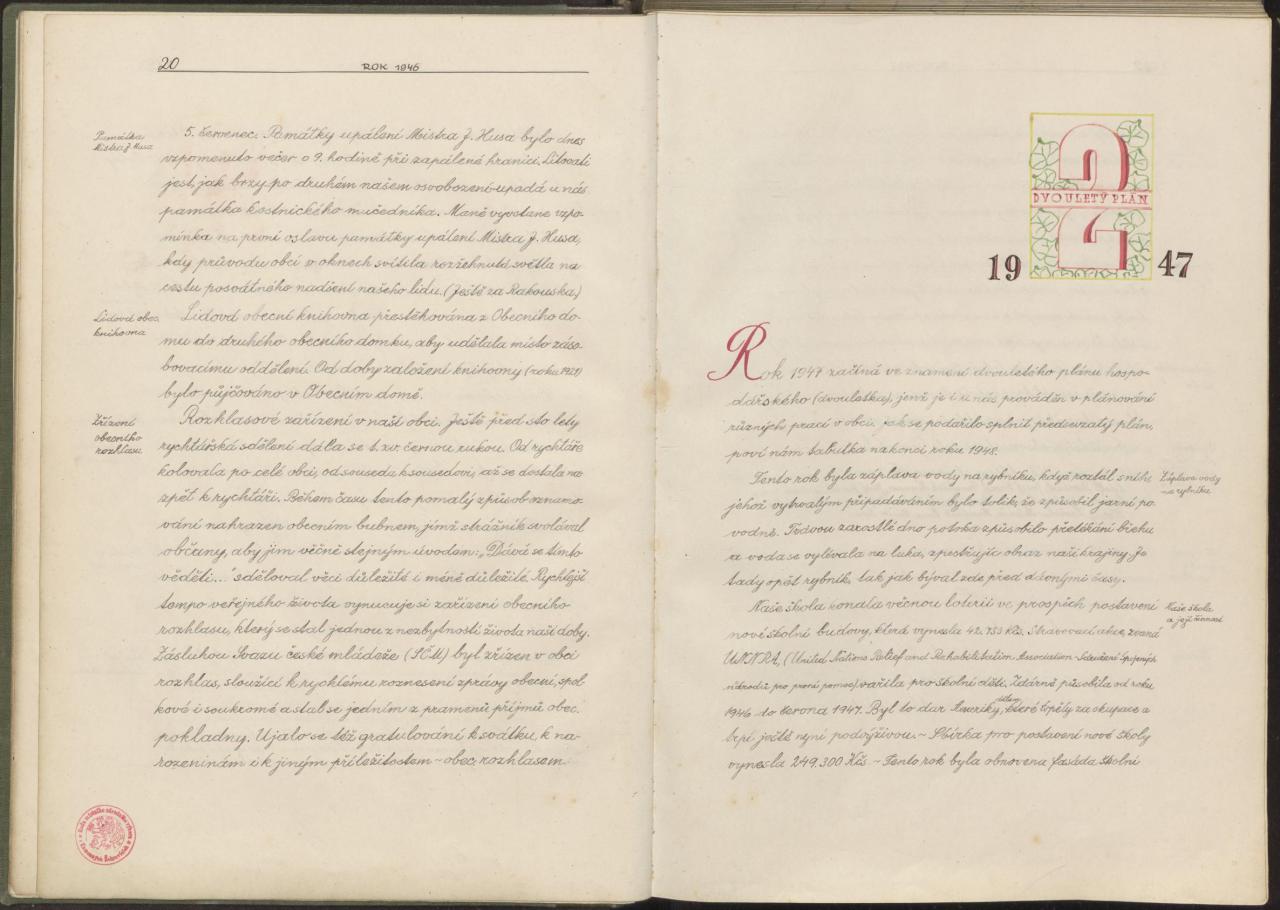 20
ROK 1946
Památka
Mistra J. Husa
5. červenec. Památky upálení Mistra J. Husa bylo dnes
vzpomenuto večer o 9. hodině při zapálené hranici. Litovati
jest, jak brzy po druhém našem osvobození upadá u nás
památka kostnického mučedníka. Maně vyvstane vzpo-
mínka na první oslavu památky upálení Mistra J. Husa,
kdy průvodu obcí v oknech svítila rozžehnutá světla na
cestu posvátného nadšení našeho lidu. (Ještě za Rakouska.)
Lidová obec.
knihovna
Lidová obecní knihovna přestěhována z Obecního do-
mu do druhého obecního domku, aby udělala místo záso-
bovacímu oddělení. Od doby založení knihovny (roku 1921)
bylo půjčováno v Obecním domě.
Zřízení
obecního
rozhlasu
Rozhlasové zařízení v naší obci. Ještě před sto lety
rychtářská sdělení dála se t. zv. černou rukou. Od rychtáře
kolovala po celé obci, od souseda k sousedovi, až se dostala na
zpět k rychtáři. Během času tento pomalý způsob oznamo-
vání nahrazen obecním bubnem, jímž strážník svolával
občany, aby jim věčně stejným úvodem: „Dává se tímto
věděti..." sděloval věci důležité i méně důležité. Rychlejší
tempo veřejného života vynucuje si zařízení obecního
rozhlasu, který se stal jednou z nezbytností života naší doby.
Zásluhou Svazu české mládeže (SČM) byl zřízen v obci
rozhlas, sloužící k rychlému roznesení zprávy obecní, spol-
kové i soukromé a stal se jedním z pramenů příjmů obec.
pokladny. Ujalo se též gratulování k svátku, k na-
rozeninám i k jiným příležitostem – obec. rozhlasem.
DVOULETÝ PLÁN
19 47
Rok 1947 začíná ve znamení dvouletého plánu hospo-
dářského (dvouletka), jenž je i u nás prováděn v plánování
různých prací v obci. Jak se podařilo splnit předsevzatý plán,
poví nám tabulka na konci roku 1948.
Tento rok byla záplava vody na rybníku, když roztál sníh,
jehož vytrvalým připadáváním bylo tolik, že způsobil jarní po-
vodně. Trávou zarostlé dno potoka způsobilo přetékání břehu
a voda se vylévala na luka, zpestřujíc obraz naší krajiny. Je
tady opět rybník, tak jak býval zde před dávnými časy.
Záplava vody
na rybníku
Naše škola konala věcnou loterii ve prospěch postavení
nové školní budovy, která vynesla 42.753 Kčs. Stravovací akce, zvaná
UNNRA, (United Nations Relief and Rehabilitation Association - Sdružení Spojených
národů pro první pomoc), vařila pro školní děti. Zdárně působila od roku
1946 do června 1947. Byl to dar Ameriky, dětem, které trpěly za okupace a
trpí ještě nyní podvýživou. – Sbírka pro postavení nové školy
vynesla 249.300 Kčs. – Tento rok byla obnovena fasáda školní
Naše škola
a její činnost